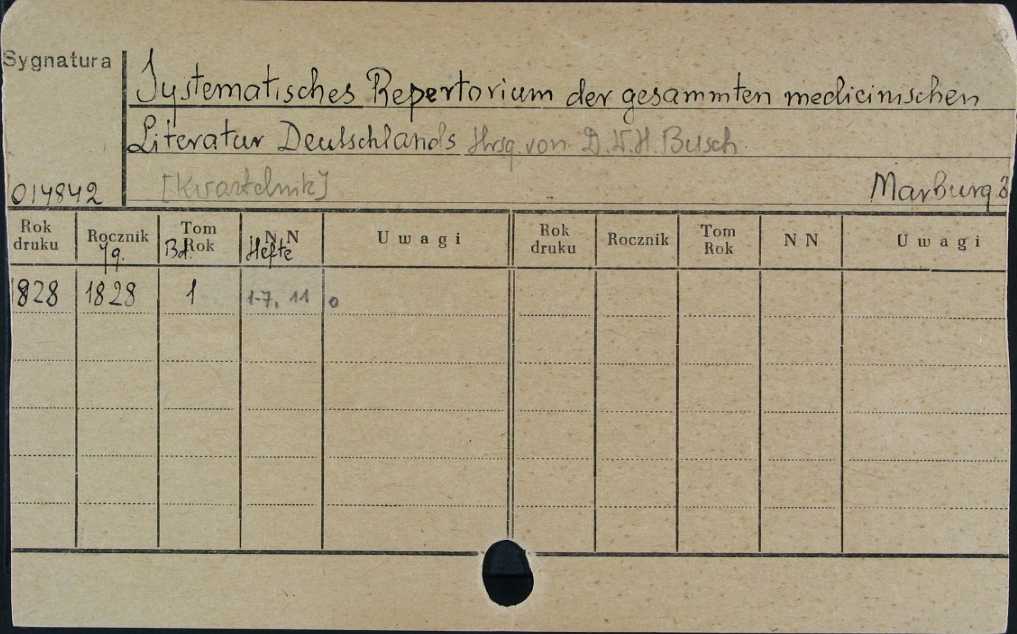 Sygnatura
Systematisches Repertorium der gesammten medicinischen
Literatur Deutschlands Hrsg. von D.W.H. Busch
014842 [Kwartalnik] Marburg
Rok druku Rocznik Tom Rok N N U w a g i Rok druku Rocznik Tom Rok N N U w a g i
Jg. Bd. Hefte
1828 1828 1 1-7, 11 o